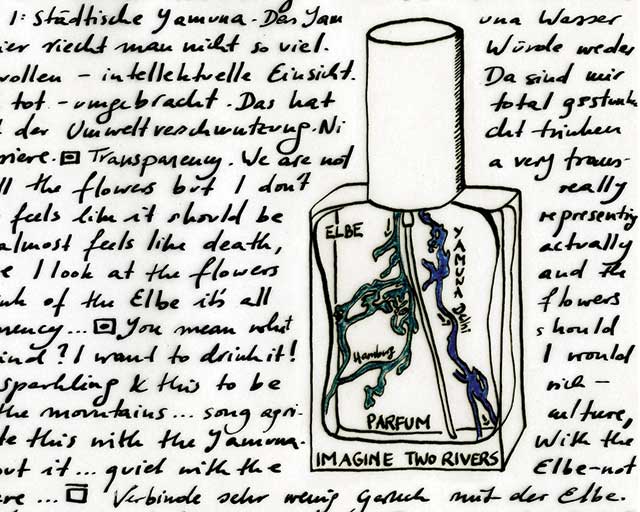 1: Städtische Yamuna. Das Yam una Wasser
ier riecht man nicht so viel. Würde weder
wollen - intellektuelle Einsicht. Da sind wir
tot - umgebracht. Das hat total gestunke
der Umweltverschmutzung. Ni cht trinken
riere. Transparency. We are not a very trans-
ll the flowers but I don't really
feels like it should be representing
almost feels like death, actually
e I look at the flowers and the
nk of the Elbe it's all flowers
rency... You mean what should
ind? I want to drink it! I would
sparkling & this to be rich -
the mountains... song agri- culture,
te this with the Yamuna. With the
out it... quiet with the Elbe-not
ere... Verbinde sehr wenig Geruch mit der Elbe.
ELBE
YAMUNA Delhi
Hamburg
PARFUM
IMAGINE TWO RIVERS